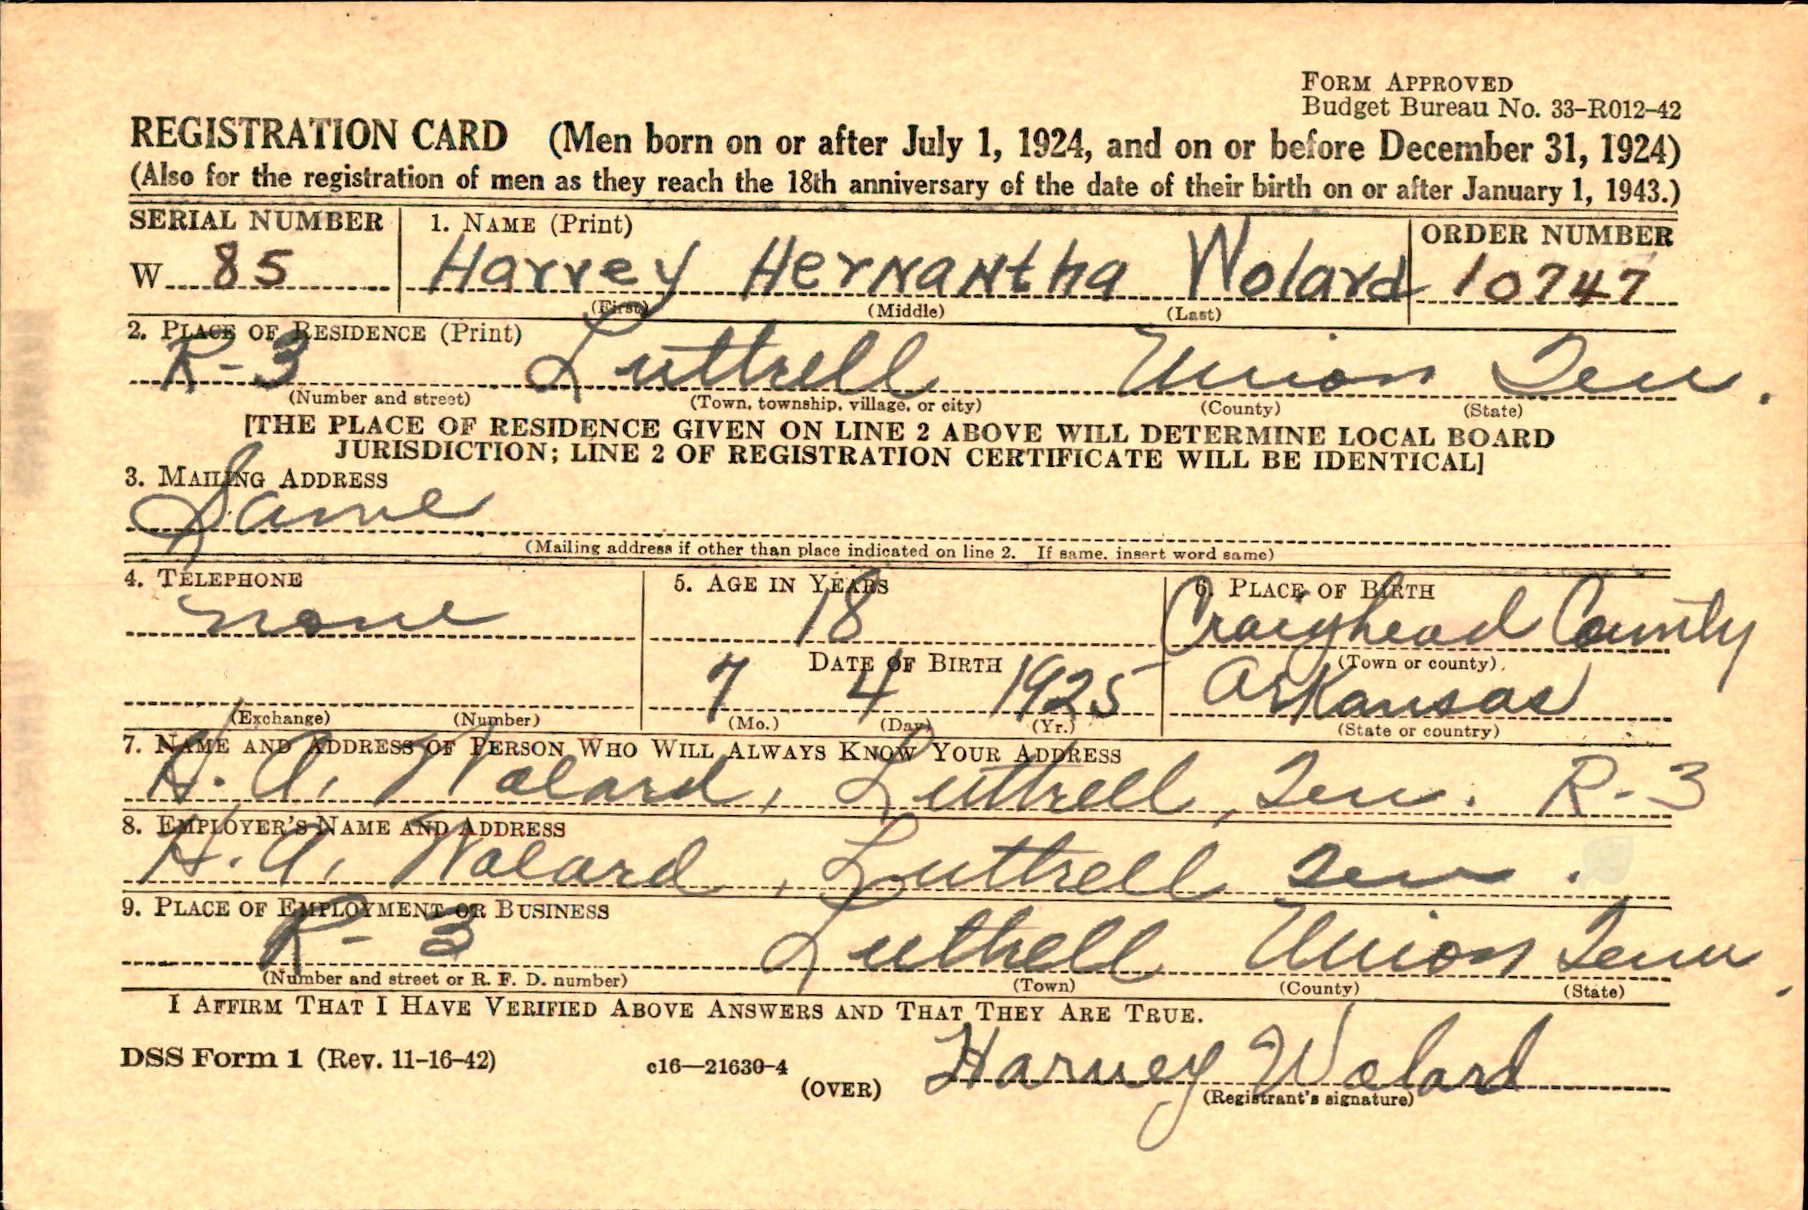 FORM APPROVED
Budget Bureau No. 33-R012-42
REGISTRATION CARD (Men born on or after July 1, 1924, and on or before December 31, 1924)
(Also for the registration of men as they reach the 18th anniversary of the date of their birth on or after January 1, 1943.)
SERIAL NUMBER 1. NAME (Print) ORDER NUMBER
W 85 Harvey Hernantha Wolard 10747
(First) (Middle) (Last)
2. PLACE OF RESIDENCE (Print)
R-3 Luttrell Union Ten.
(Number and street) (Town, township, village, or city) (County) (State)
[THE PLACE OF RESIDENCE GIVEN ON LINE 2 ABOVE WILL DETERMINE LOCAL BOARD
JURISDICTION; LINE 2 OF REGISTRATION CERTIFICATE WILL BE IDENTICAL]
3. MAILING ADDRESS
Same
(Mailing address if other than place indicated on line 2. If same, insert word same)
4. TELEPHONE 5. AGE IN YEARS 6. PLACE OF BIRTH
none 18 Craighead County
DATE OF BIRTH (Town or county)
7 4 1925 Arkansas
(Exchange) (Number) (Mo.) (Day) (Yr.) (State or country)
7. NAME AND ADDRESS OF PERSON WHO WILL ALWAYS KNOW YOUR ADDRESS
H. A. Wolard, Luttrell, Ten. R-3
8. EMPLOYER'S NAME AND ADDRESS
H. A. Wolard, Luttrell Ten.
9. PLACE OF EMPLOYMENT OR BUSINESS
R-3 Luttrell Union Tenn.
(Number and street or R. F. D. number) (Town) (County) (State)
I AFFIRM THAT I HAVE VERIFIED ABOVE ANSWERS AND THAT THEY ARE TRUE.
DSS Form 1 (Rev. 11-16-42) c16—21630-4 (OVER) Harvey Wolard
(Registrant's signature)